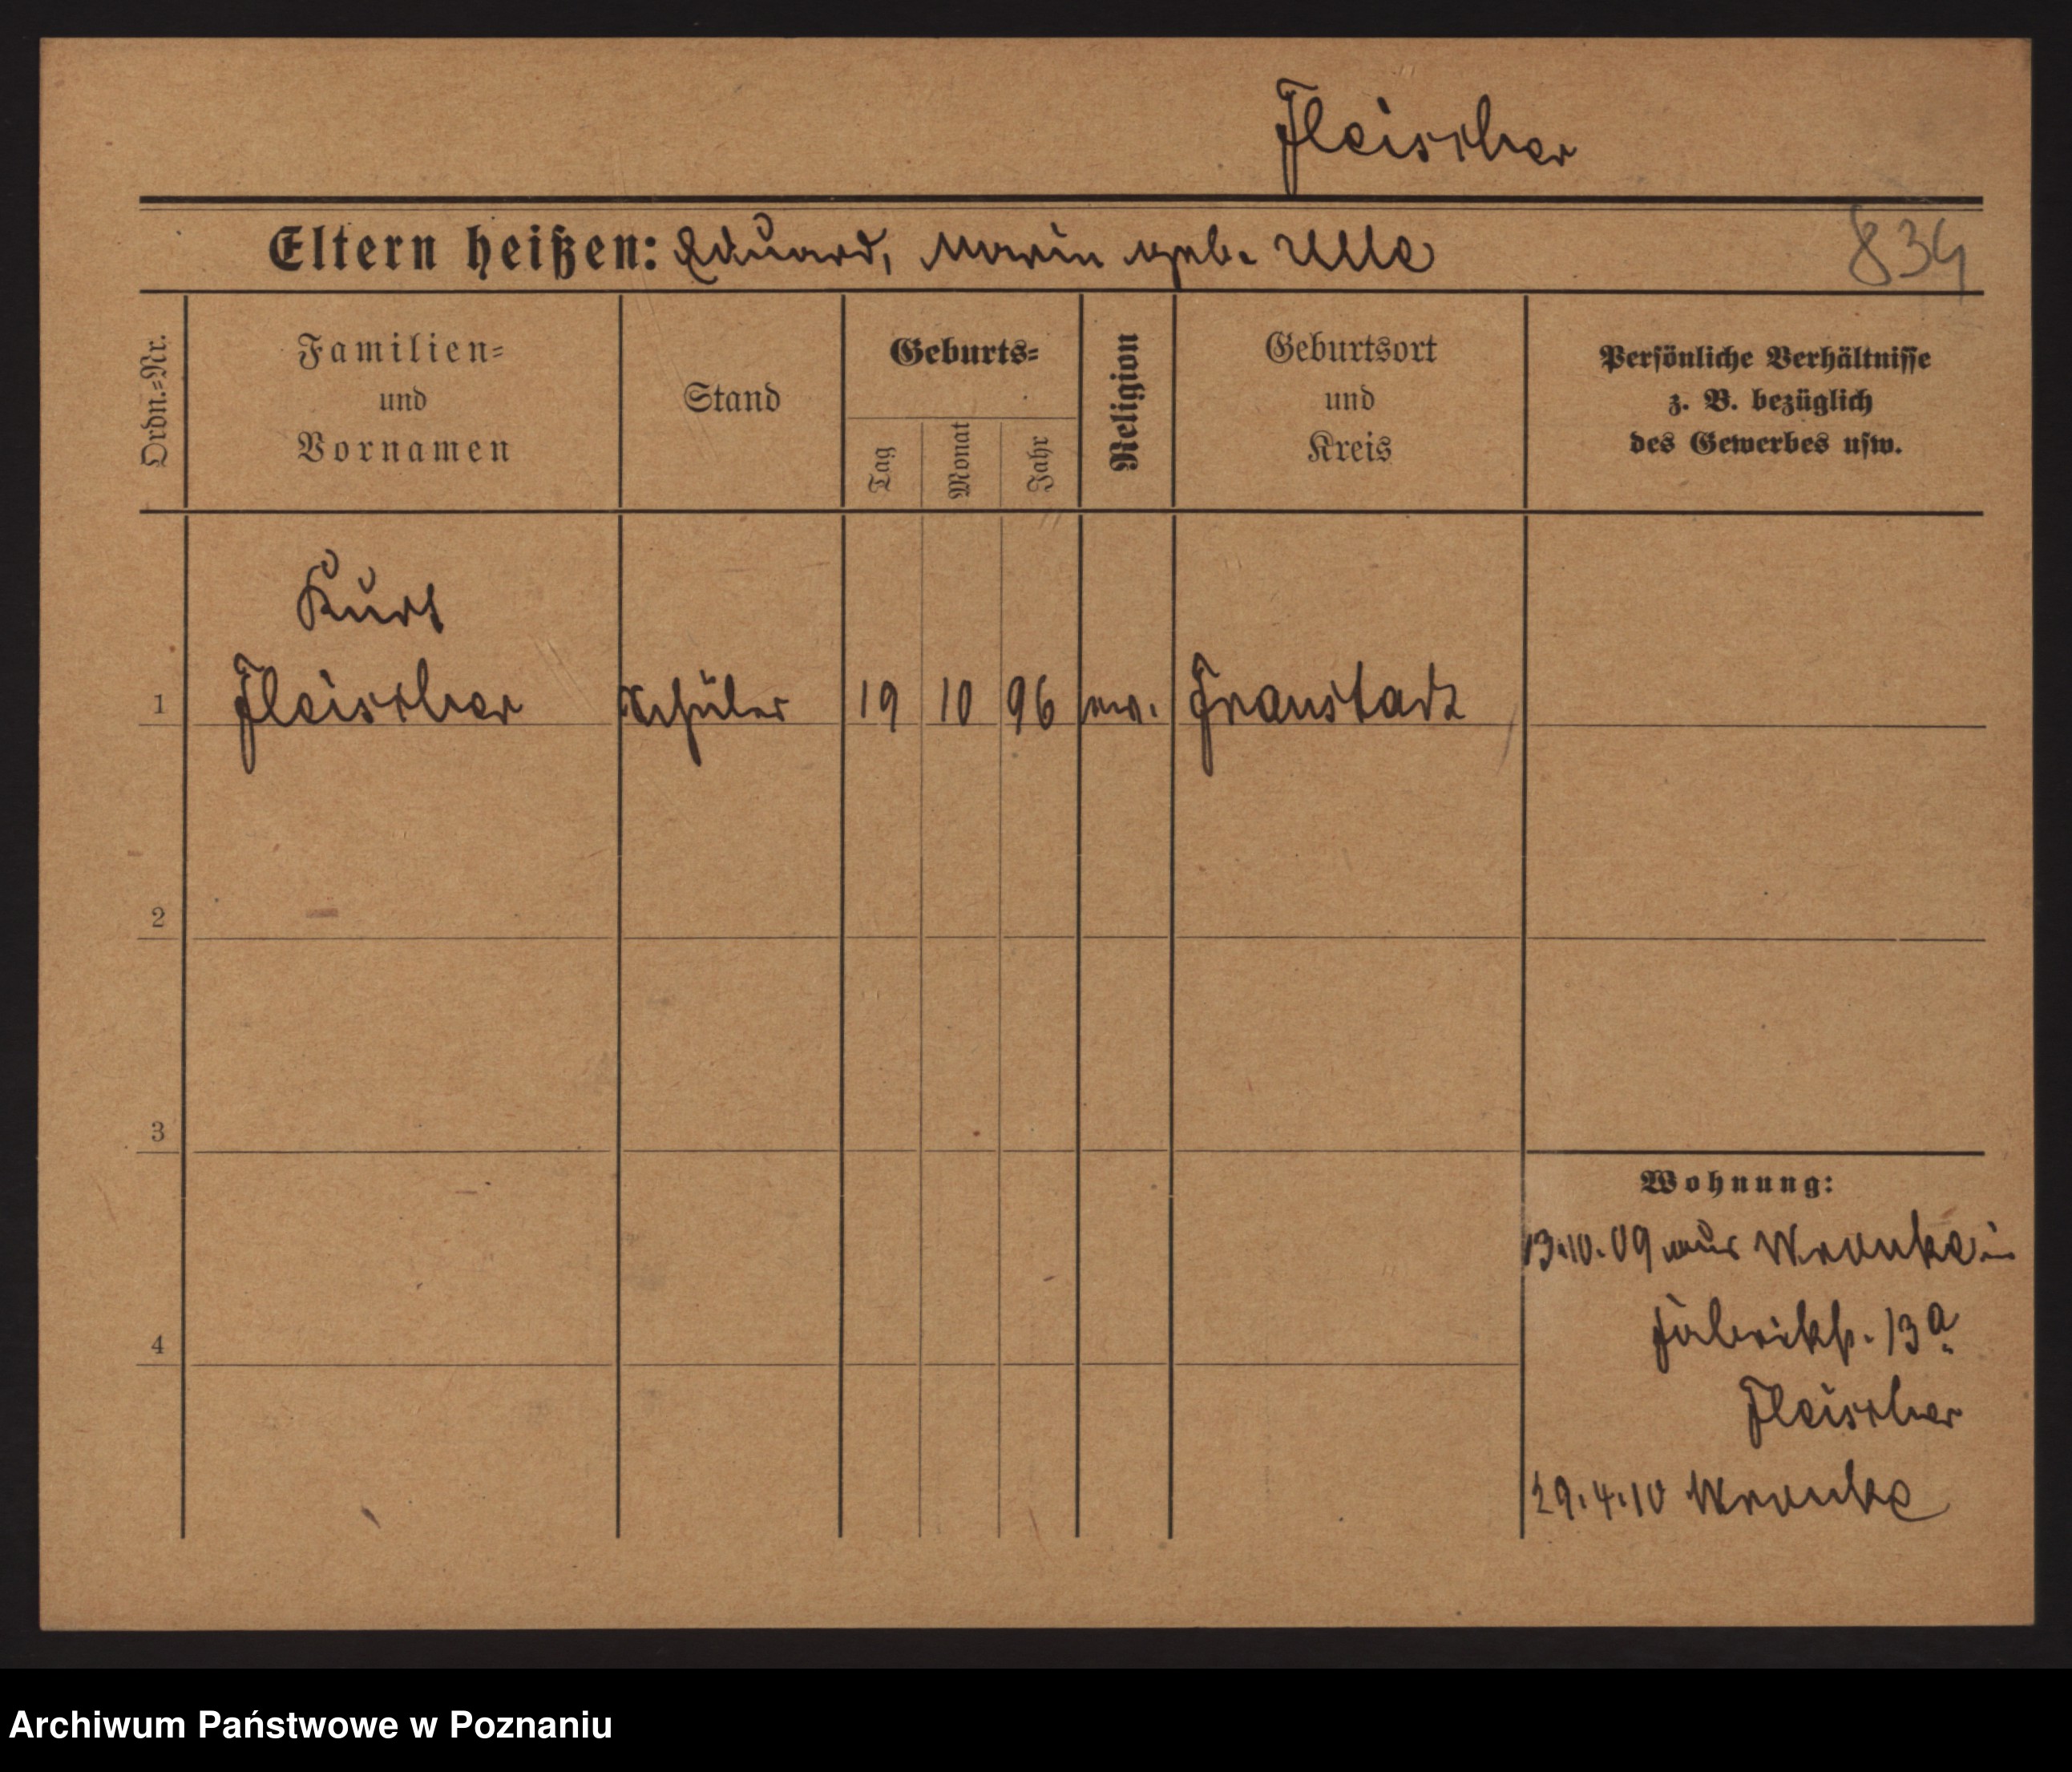 Fleischer
Eltern heißen: Eduard, Maria geb. Ulle
834
Ordn.=Nr.
Familien=
und
Vornamen
Stand
Geburts=
Tag
Monat
Jahr
Religion
Geburtsort
und
Kreis
Persönliche Verhältnisse
z. B. bezüglich
des Gewerbes usw.
Kurt
1 Fleischer Schüler 19 10 96 ev. Fraustadt
2
3
4
Wohnung:
13.10.09 aus Wronke in
Fabrikst. 13a
Fleischer
29.4.10 Wronke
Archiwum Państwowe w Poznaniu